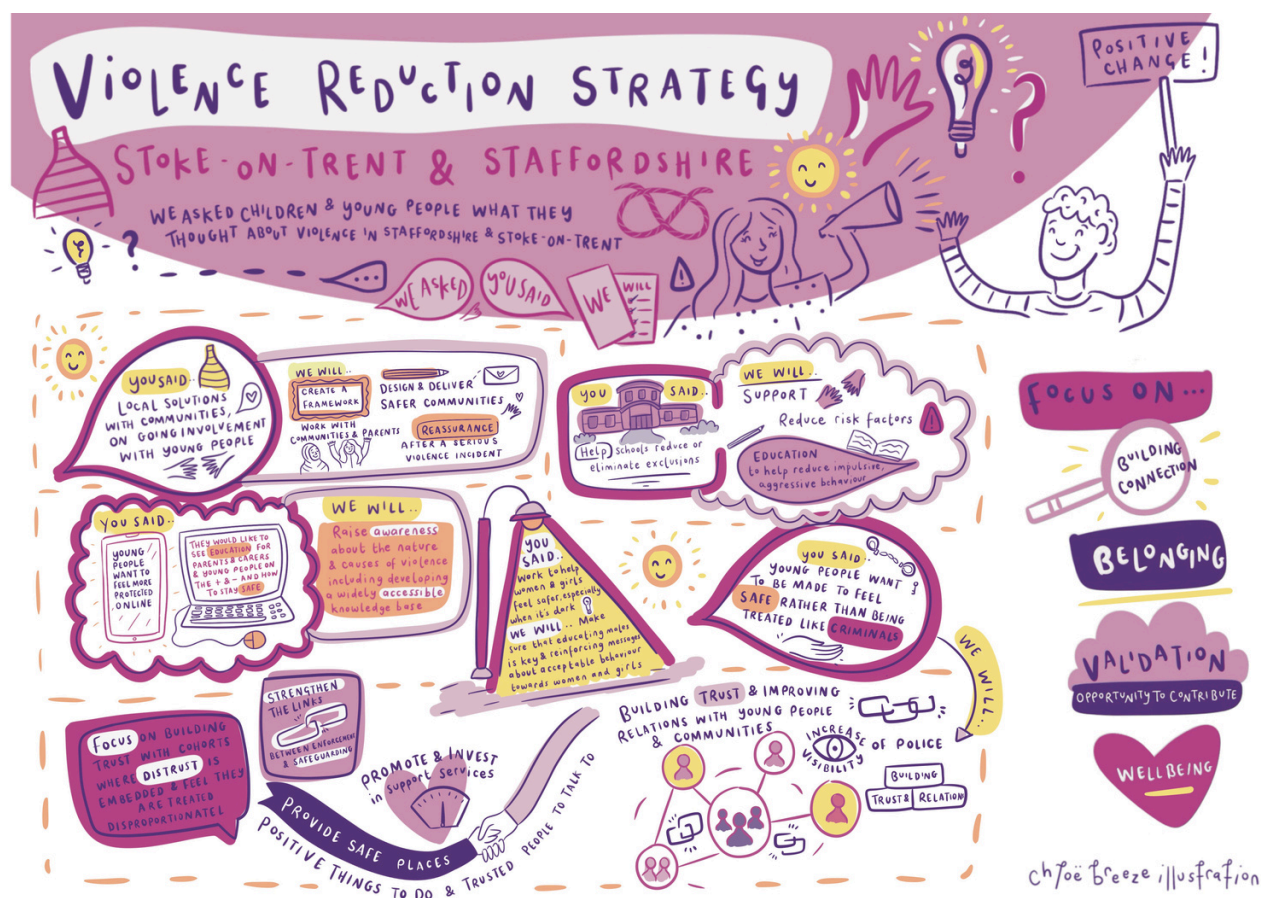 VIOLENCE REDUCTION STRATEGY
STOKE-ON-TRENT & STAFFORDSHIRE
WE ASKED CHILDREN & YOUNG PEOPLE WHAT THEY
THOUGHT ABOUT VIOLENCE IN STAFFORDSHIRE & STOKE-ON-TRENT
WE ASKED
YOU SAID
WE
WILL
POSITIVE
CHANGE!
YOU SAID..
LOCAL SOLUTIONS
WITH COMMUNITIES,
ON GOING INVOLVEMENT
WITH YOUNG PEOPLE
WE WILL..
CREATE A
FRAMEWORK
WORK WITH
COMMUNITIES & PARENTS
DESIGN & DELIVER
SAFER COMMUNITIES
REASSURANCE
AFTER A SERIOUS
VIOLENCE INCIDENT
YOU SAID..
Help schools reduce or
eliminate exclusions
WE WILL..
SUPPORT
Reduce risk factors
EDUCATION
to help reduce impulsive,
aggressive behaviour
YOU SAID..
YOUNG
PEOPLE
WANT TO
FEEL MORE
PROTECTED
ONLINE
THEY WOULD LIKE TO
SEE EDUCATION FOR
PARENTS & CARERS
& YOUNG PEOPLE ON
THE + & - AND HOW
TO STAY SAFE
WE WILL..
Raise awareness
about the nature
& causes of violence
including developing
a widely accessible
knowledge base
YOU
SAID..
Work to help
women & girls
feel safer, especially
when it's dark
WE WILL.. Make
sure that educating males
is key & reinforcing messages
about acceptable behaviour
towards women and girls
YOU SAID..
YOUNG PEOPLE WANT
TO BE MADE TO FEEL
SAFE RATHER THAN BEING
TREATED LIKE CRIMINALS
WE WILL..
BUILDING TRUST & IMPROVING
RELATIONS WITH YOUNG PEOPLE
& COMMUNITIES
INCREASE
VISIBILITY
OF POLICE
BUILDING
TRUST &
RELATION
FOCUS ON BUILDING
TRUST WITH COHORTS
WHERE DISTRUST IS
EMBEDDED & FEEL THEY
ARE TREATED
DISPROPORTIONATEL
STRENGTHEN
THE LINKS
BETWEEN ENFORCEMENT
& SAFEGUARDING
PROMOTE & INVEST
in support services
PROVIDE SAFE PLACES
POSITIVE THINGS TO DO & TRUSTED PEOPLE TO TALK TO
FOCUS ON...
BUILDING
CONNECTION
BELONGING
VALIDATION
OPPORTUNITY TO CONTRIBUTE
WELLBEING
chloë breeze illustration